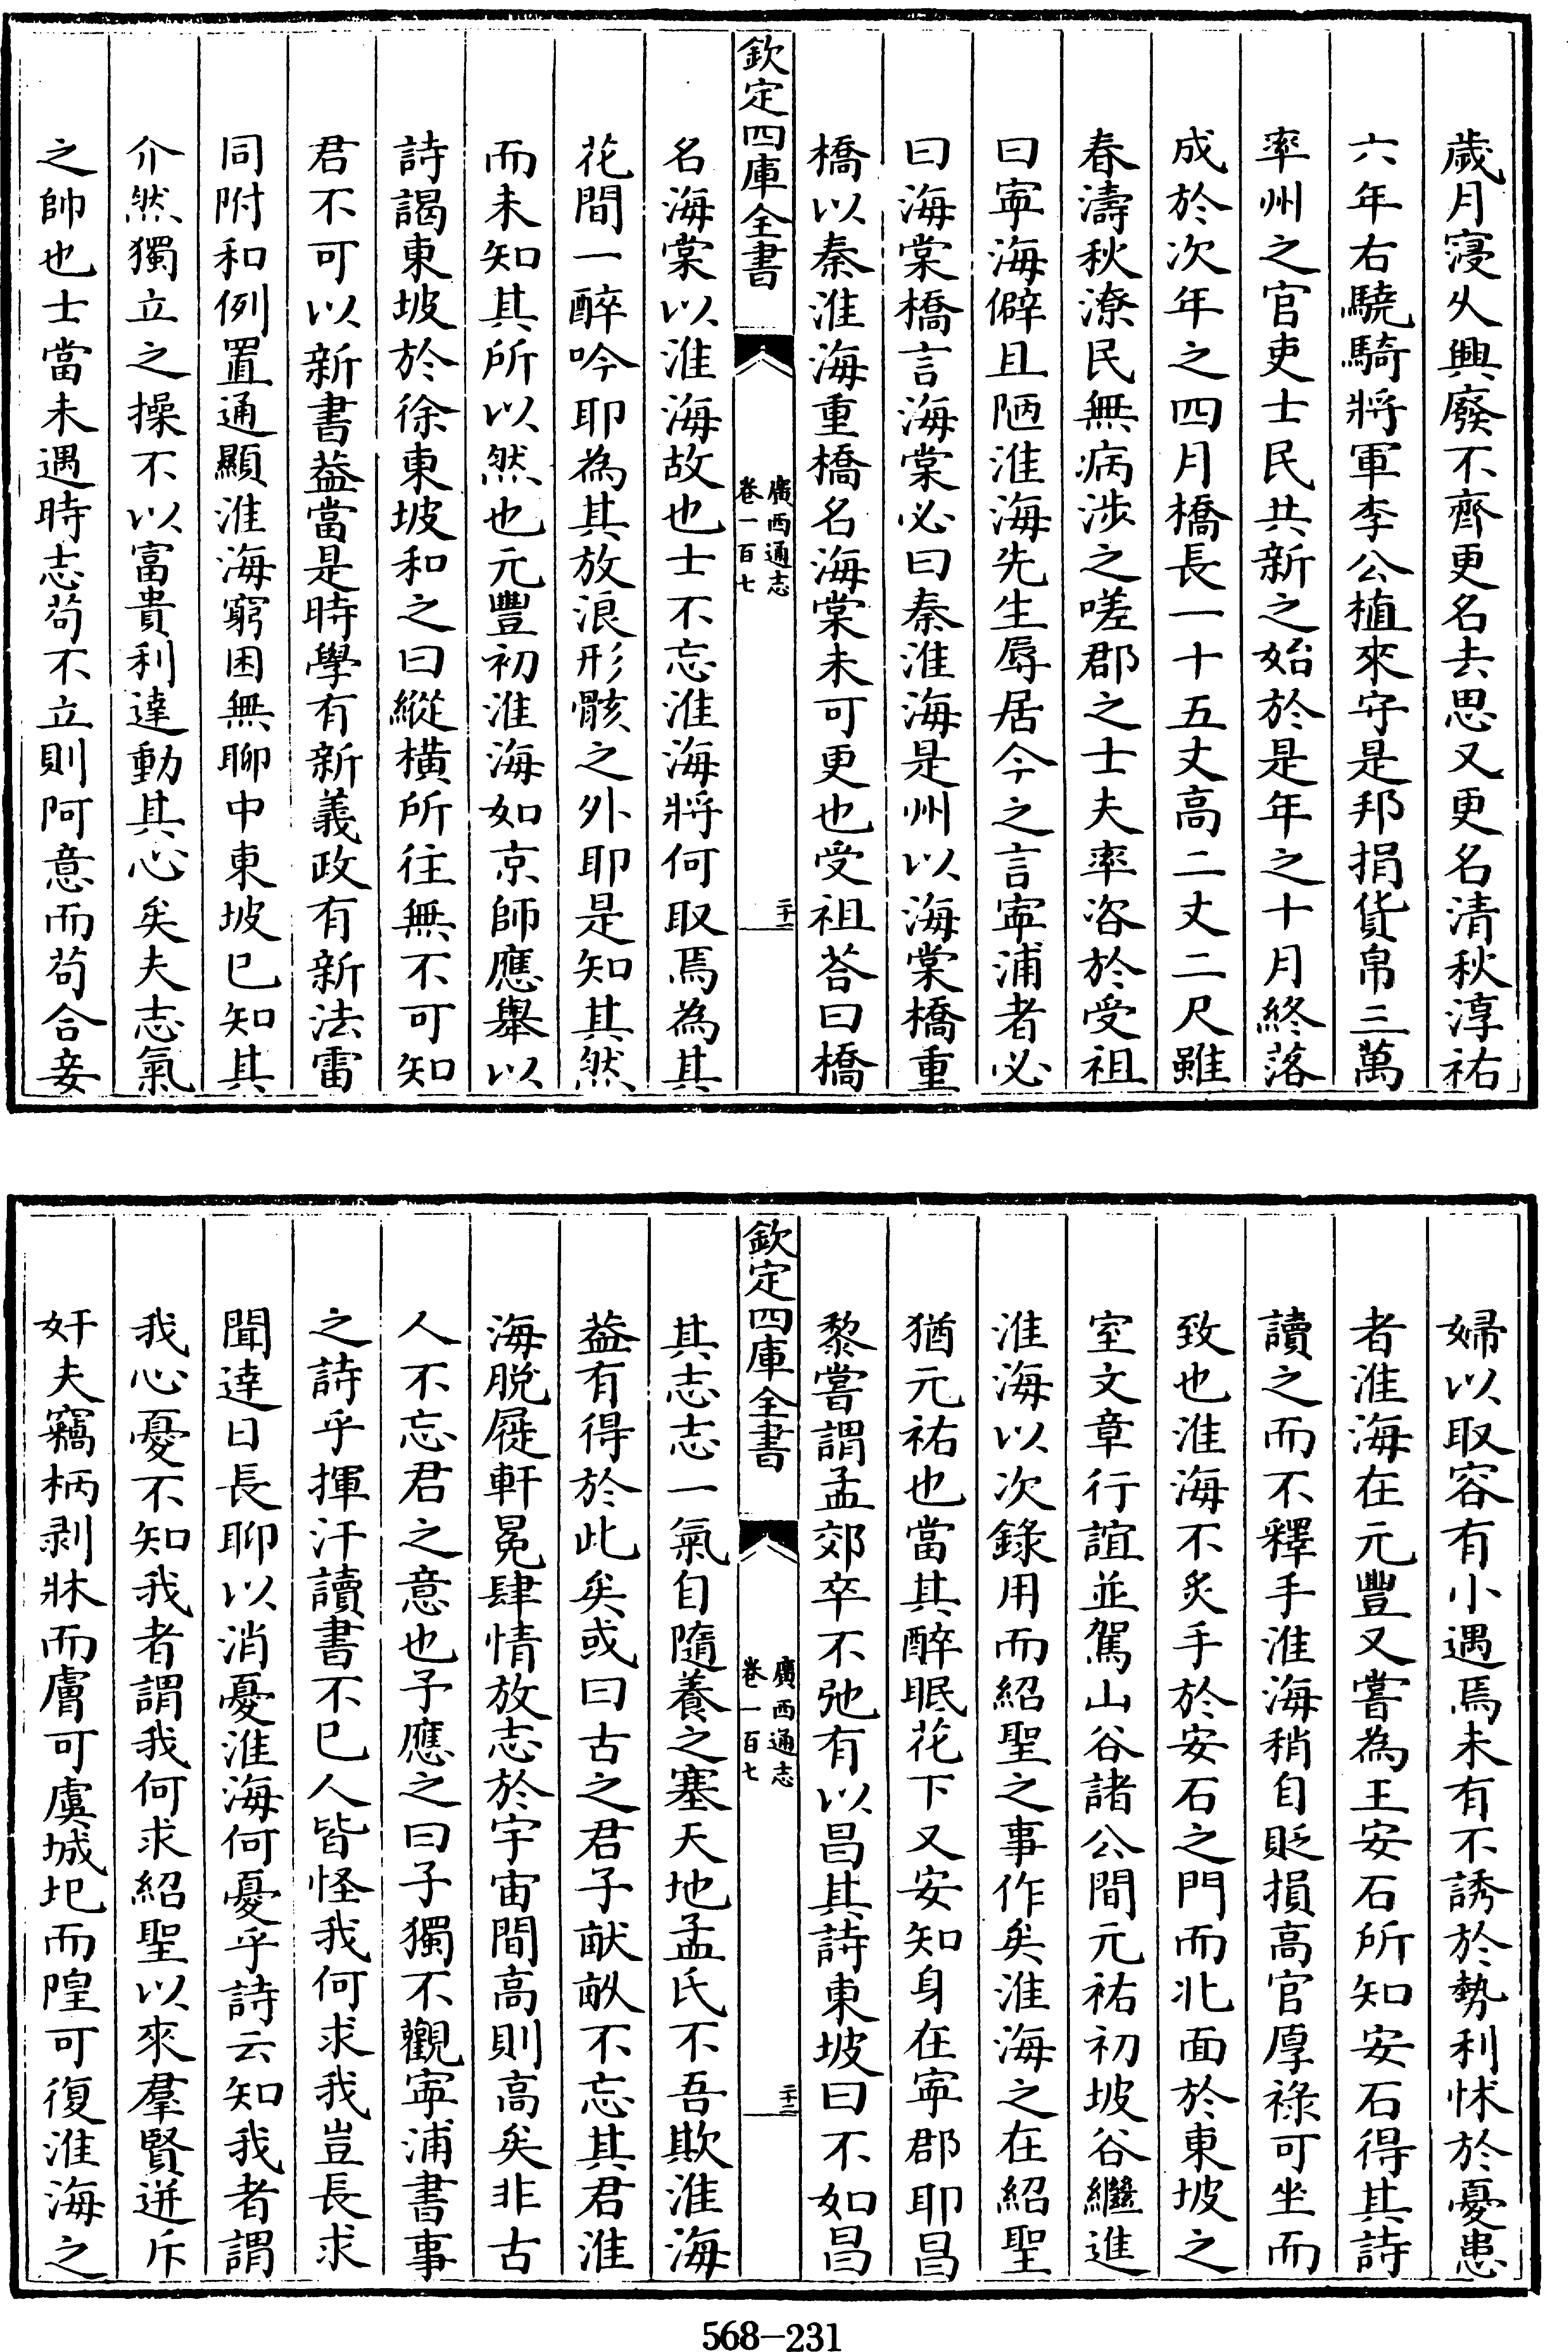 歲月寖久興廢不齊更名去思又更名清秋淳祐
六年右驍騎將軍李公植來守是邦捐貨帛三萬
率州之官吏士民共新之始於是年之十月終落
成於次年之四月橋長一十五丈高二丈二尺雖
春濤秋潦民無病涉之嗟郡之士夫率咨於受祖
曰寜海僻且陋淮海先生辱居今之言寜浦者必
曰海棠橋言海棠必曰秦淮海是州以海棠橋重
橋以秦淮海重橋名海棠未可更也受祖荅曰橋
欽定四庫全書
廣西通志
卷一百七
二十一
名海棠以淮海故也士不忘淮海將何取焉為其
花間一醉吟耶為其放浪形骸之外耶是知其然
而未知其所以然也元豐初淮海如京師應舉以
詩謁東坡於徐東坡和之曰縱横所往無不可知
君不可以新書益當是時學有新義政有新法雷
同附和例置通顯淮海窮困無聊中東坡已知其
介然獨立之操不以富貴利達動其心矣夫志氣
之帥也士當未遇時志苟不立則阿意而苟合妾
婦以取容有小遇焉未有不誘於勢利怵於憂患
者淮海在元豐又嘗為王安石所知安石得其詩
讀之而不釋手淮海稍自貶損高官厚祿可坐而
致也淮海不炙手於安石之門而北面於東坡之
室文章行誼並駕山谷諸公間元祐初坡谷繼進
淮海以次錄用而紹聖之事作矣淮海之在紹聖
猶元祐也當其醉眠花下又安知身在寜郡耶昌
黎嘗謂孟郊卒不弛有以昌其詩東坡曰不如昌
欽定四庫全書
廣西通志
卷一百七
二十二
其志志一氣自隨養之塞天地孟氏不吾欺淮海
益有得於此矣或曰古之君子猷畝不忘其君淮
海脫屣軒冕肆情放志於宇宙間高則高矣非古
人不忘君之意也予應之曰子獨不觀寜浦書事
之詩乎揮汗讀書不已人皆怪我何求我豈長求
聞達日長聊以消憂淮海何憂乎詩云知我者謂
我心憂不知我者謂我何求紹聖以來羣賢迸斥
奸夫竊柄剥牀而膚可虞城圯而隍可復淮海之
568-231